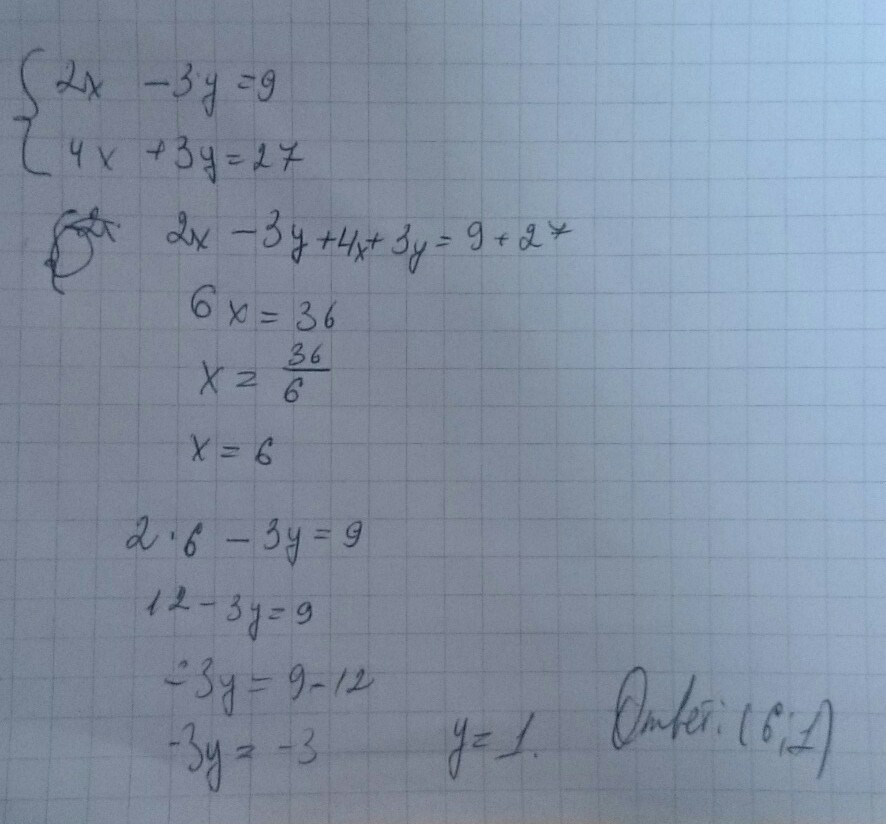 2x - 3y = 9
4x + 3y = 27
2x - 3y + 4x + 3y = 9 + 27
6x = 36
x = 36/6
x = 6
2 · 6 - 3y = 9
12 - 3y = 9
-3y = 9 - 12
-3y = -3 y = 1. Ответ: (6; 1)